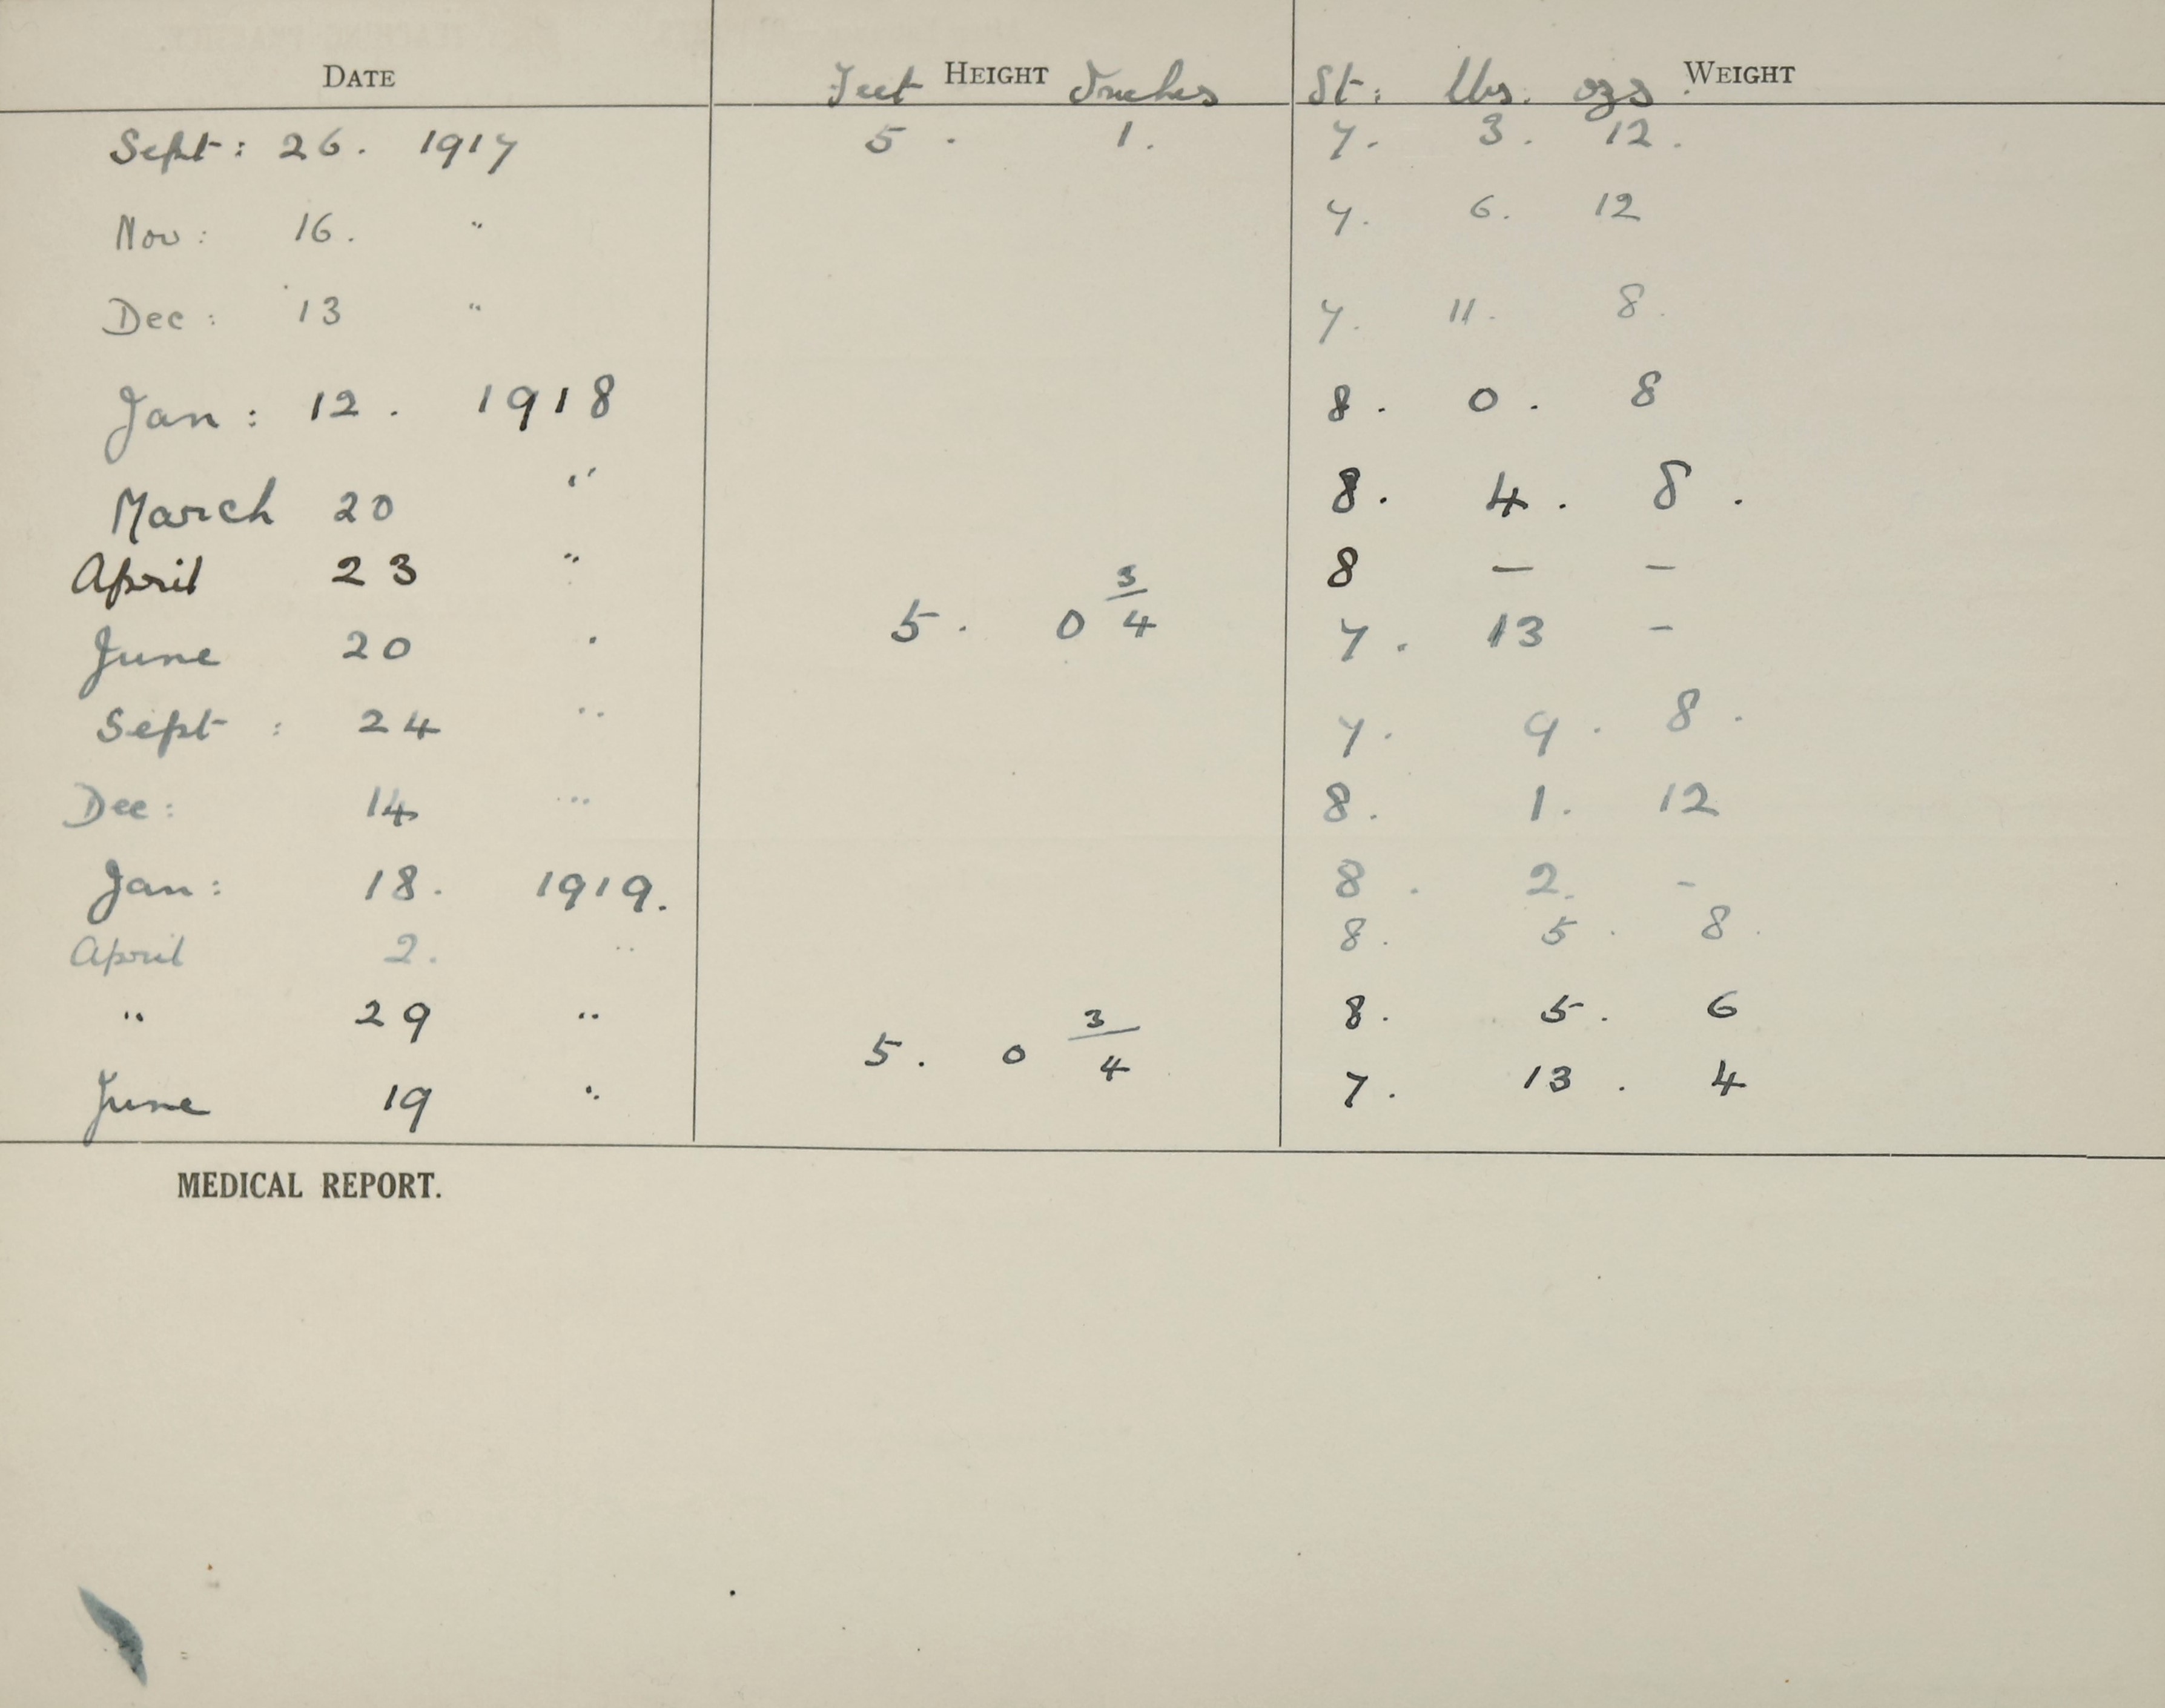 DATE Feet HEIGHT Inches St: lbs. ozs WEIGHT
Sept: 26. 1917 5 . 1. 7. 3. 12.
Nov: 16. " 7. 6. 12
Dec: 13 " 7. 11. 8.
Jan: 12. 1918 8. 0. 8
March 20 " 8. 4. 8.
April 23 " 8 — —
June 20 " 5. 0 3/4 7. 13 -
Sept: 24 " 7. 9. 8.
Dec: 14 " 8. 1. 12
Jan: 18. 1919. 8. 2. -
April 2. " 8. 5. 8.
" 29 " 8. 5. 6
June 19 " 5. 0 3/4 7. 13. 4
MEDICAL REPORT.